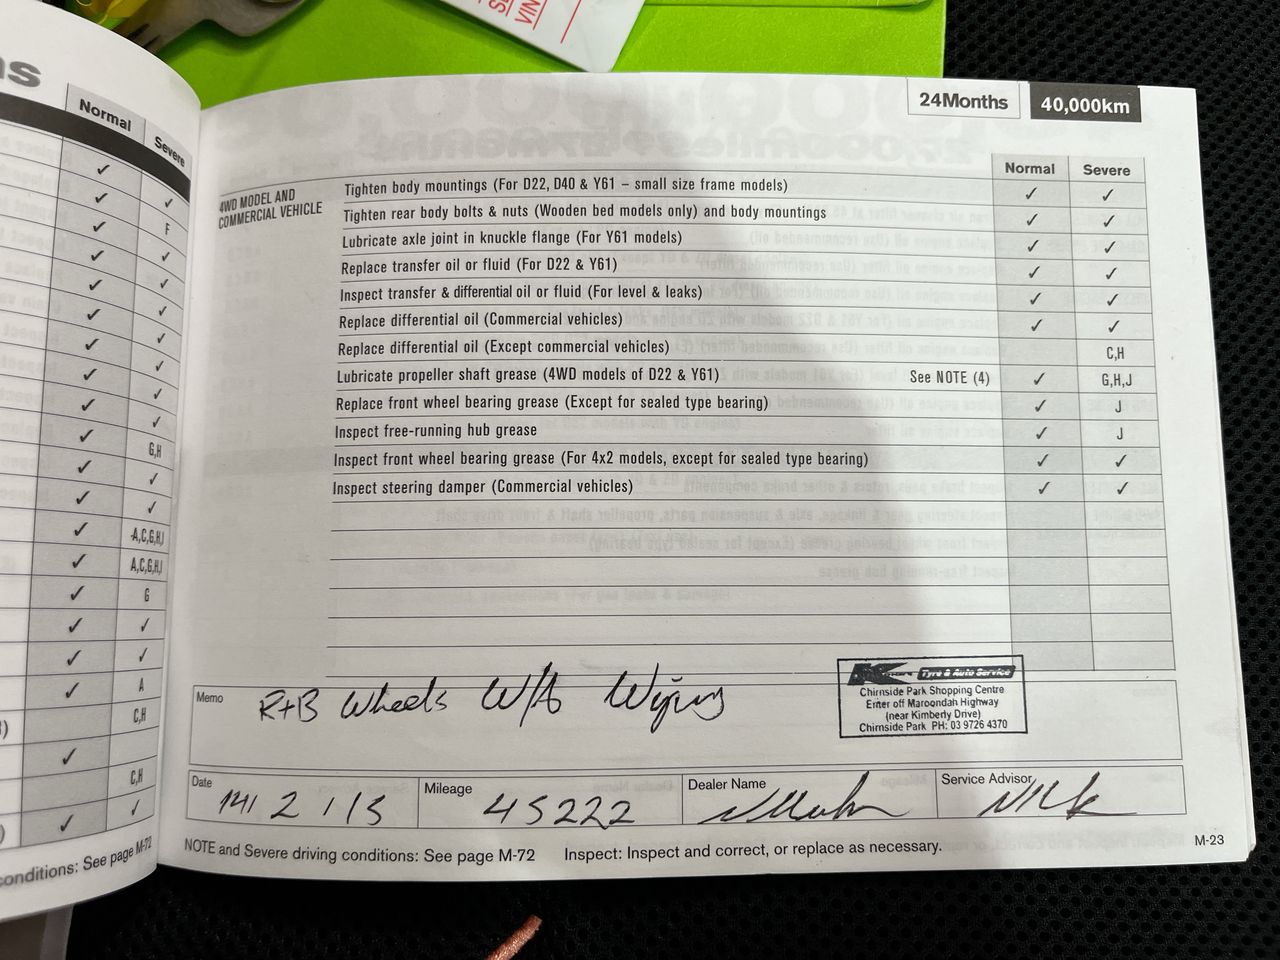 Normal
Severe
F
G,H
A,C,G,H,J
A,C,G,H,J
G
A
C,H
C,H
conditions: See page M-72
24Months 40,000km
Normal Severe
4WD MODEL AND
COMMERCIAL VEHICLE
Tighten body mountings (For D22, D40 & Y61 – small size frame models) ✓ ✓
Tighten rear body bolts & nuts (Wooden bed models only) and body mountings ✓ ✓
Lubricate axle joint in knuckle flange (For Y61 models) ✓ ✓
Replace transfer oil or fluid (For D22 & Y61) ✓ ✓
Inspect transfer & differential oil or fluid (For level & leaks) ✓ ✓
Replace differential oil (Commercial vehicles) ✓ ✓
Replace differential oil (Except commercial vehicles) C,H
Lubricate propeller shaft grease (4WD models of D22 & Y61) See NOTE (4) ✓ G,H,J
Replace front wheel bearing grease (Except for sealed type bearing) ✓ J
Inspect free-running hub grease ✓ J
Inspect front wheel bearing grease (For 4x2 models, except for sealed type bearing) ✓ ✓
Inspect steering damper (Commercial vehicles) ✓ ✓
Memo R+B Wheels W/A
Tyre & Auto Service
Chirnside Park Shopping Centre
Enter off Maroondah Highway
(near Kimberly Drive)
Chirnside Park PH: 03 9726 4370
Date 14/2/13 Mileage 45222 Dealer Name Service Advisor Nick
NOTE and Severe driving conditions: See page M-72 Inspect: Inspect and correct, or replace as necessary.
M-23